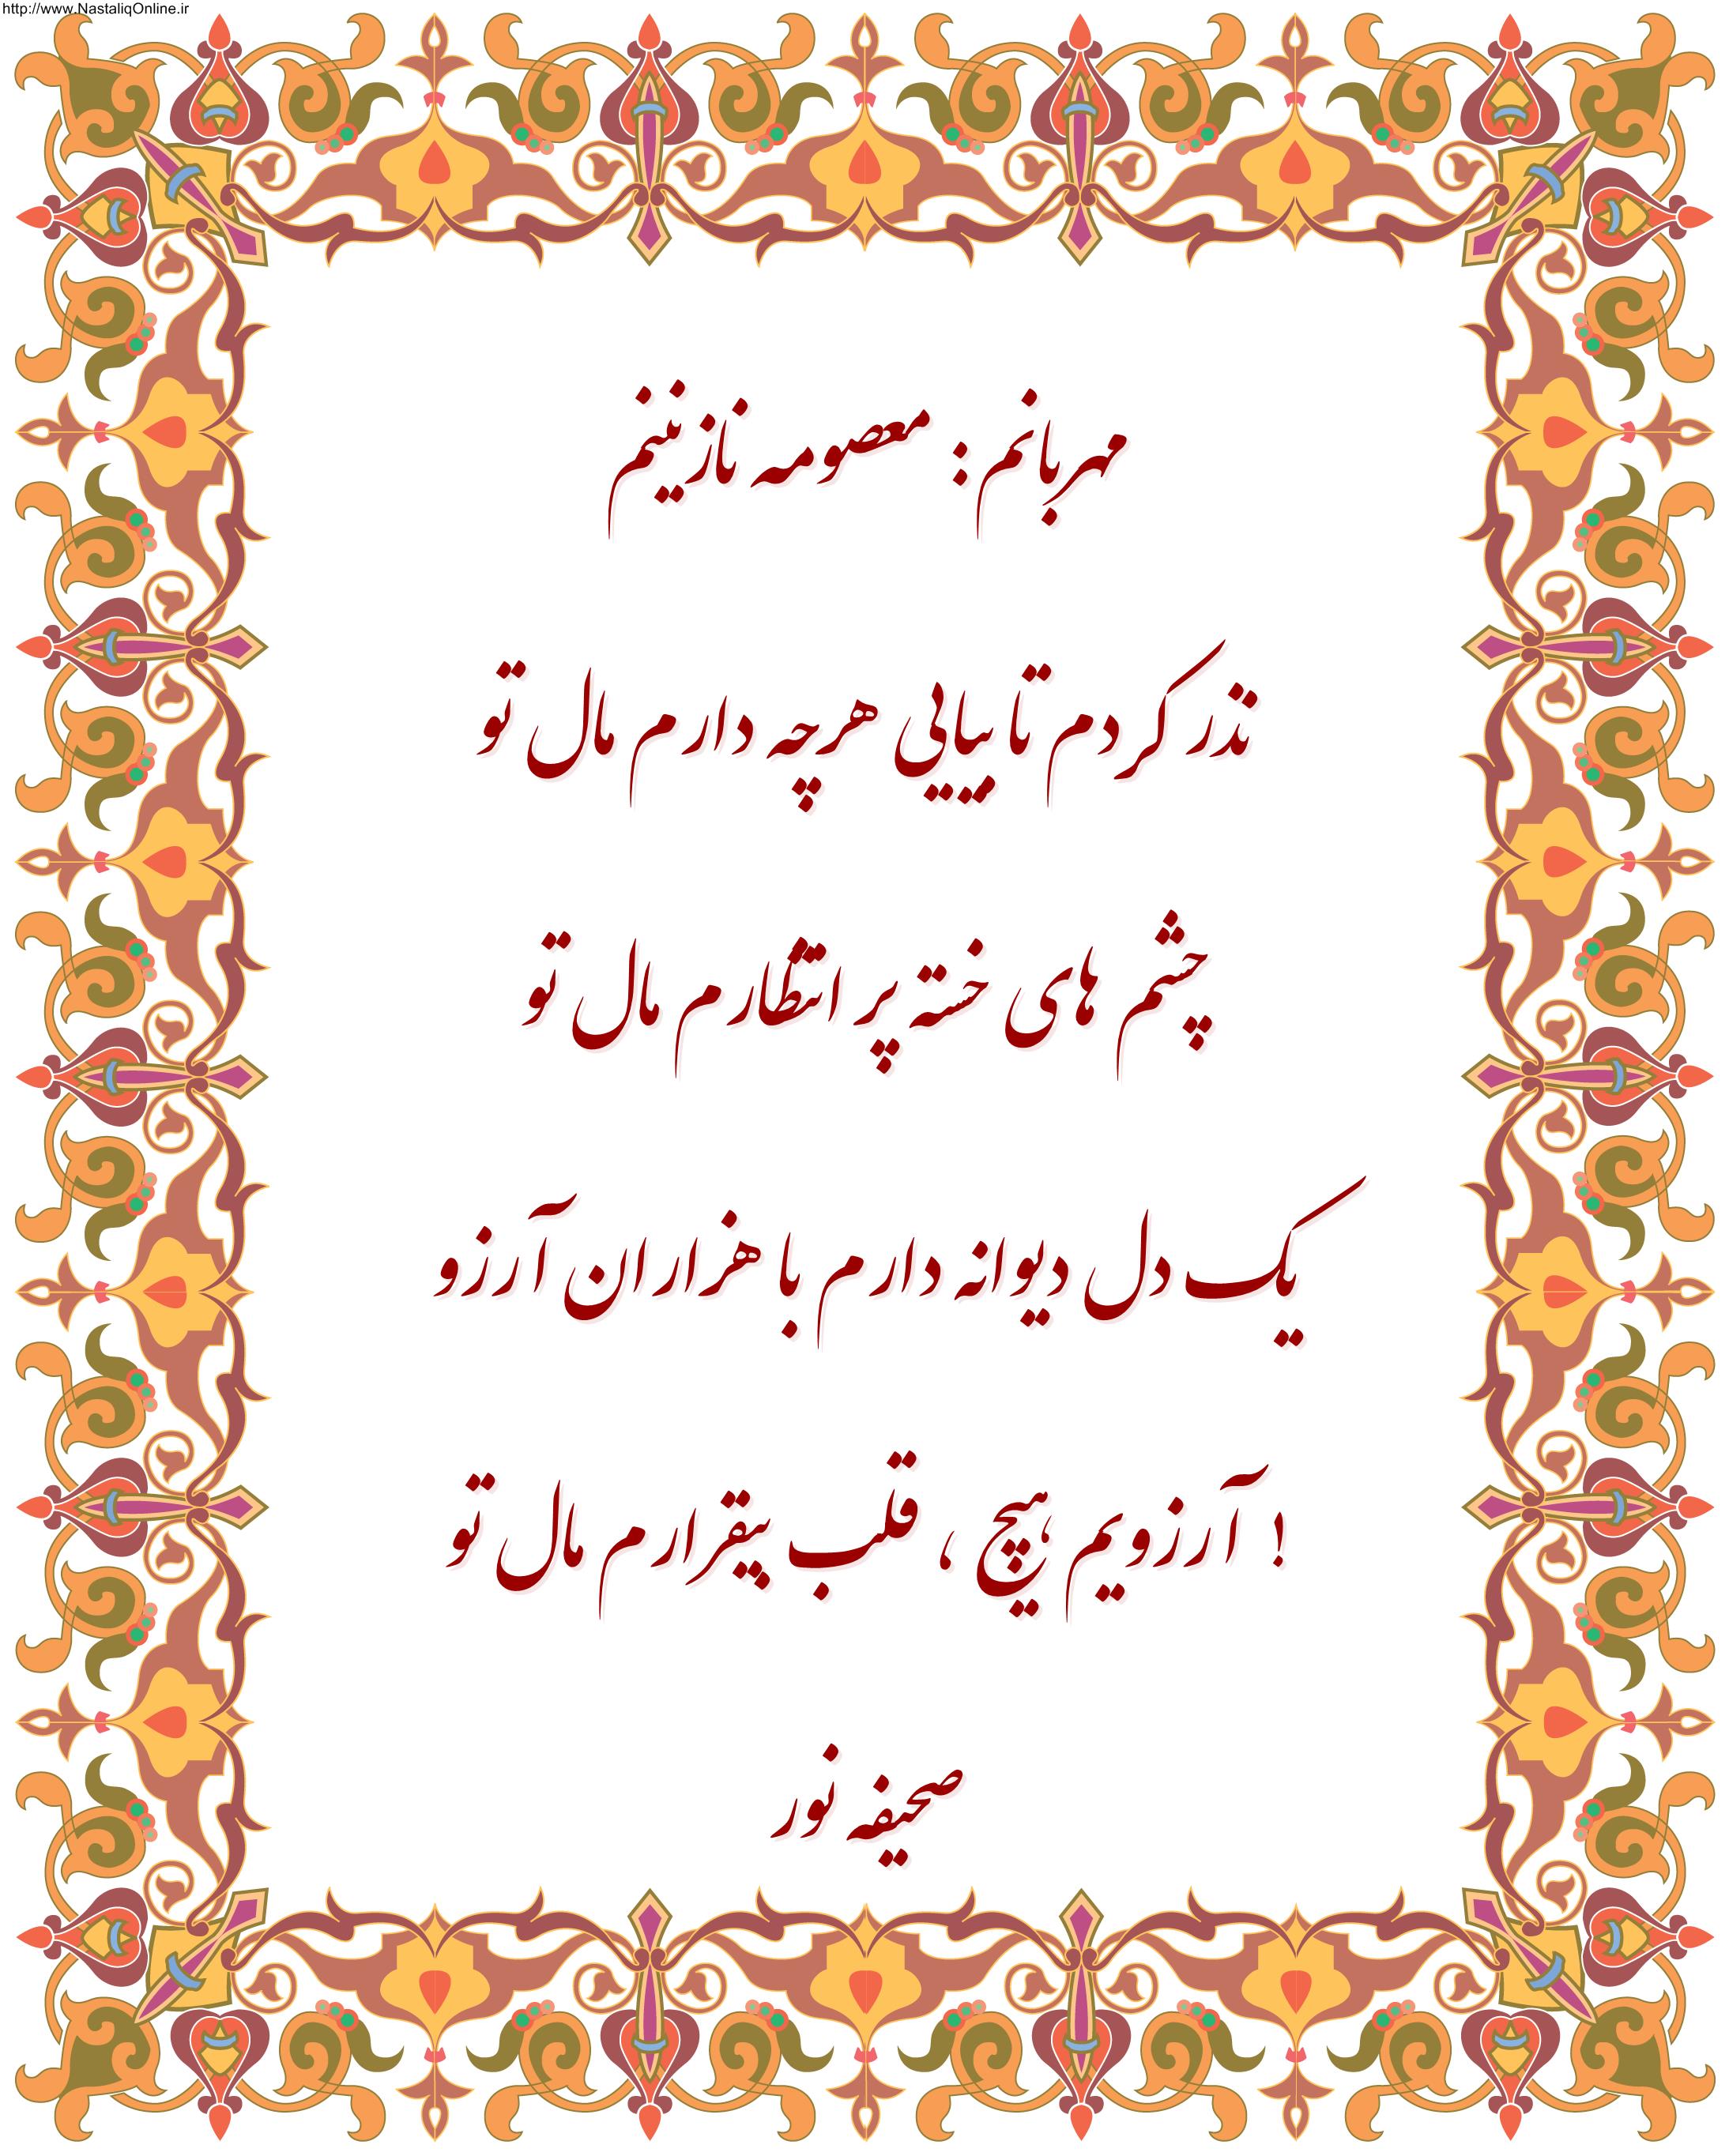 http://www.NastaliqOnline.ir
مهربانم : معصومه نازنینم
نذر کردم تا بیایی هرچه دارم مال تو
چشم های خسته پر انتظارم مال تو
یک دل دیوانه دارم با هزاران آرزو
! آرزویم هیچ ، قلب بیقرارم مال تو
صحیفه نور